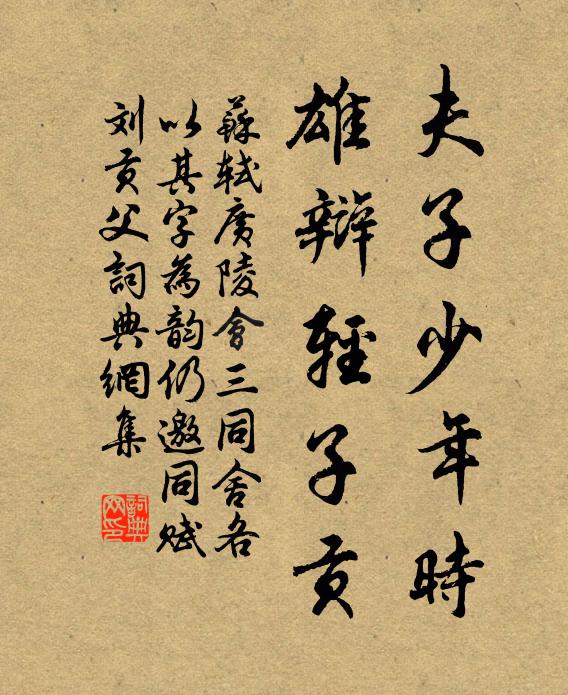 夫子少年時
雄辯輕子貢
蘇軾廣陵會三同舍各
以其字為韵仍邀同賦
刘貢父詞典網集
詞典網印